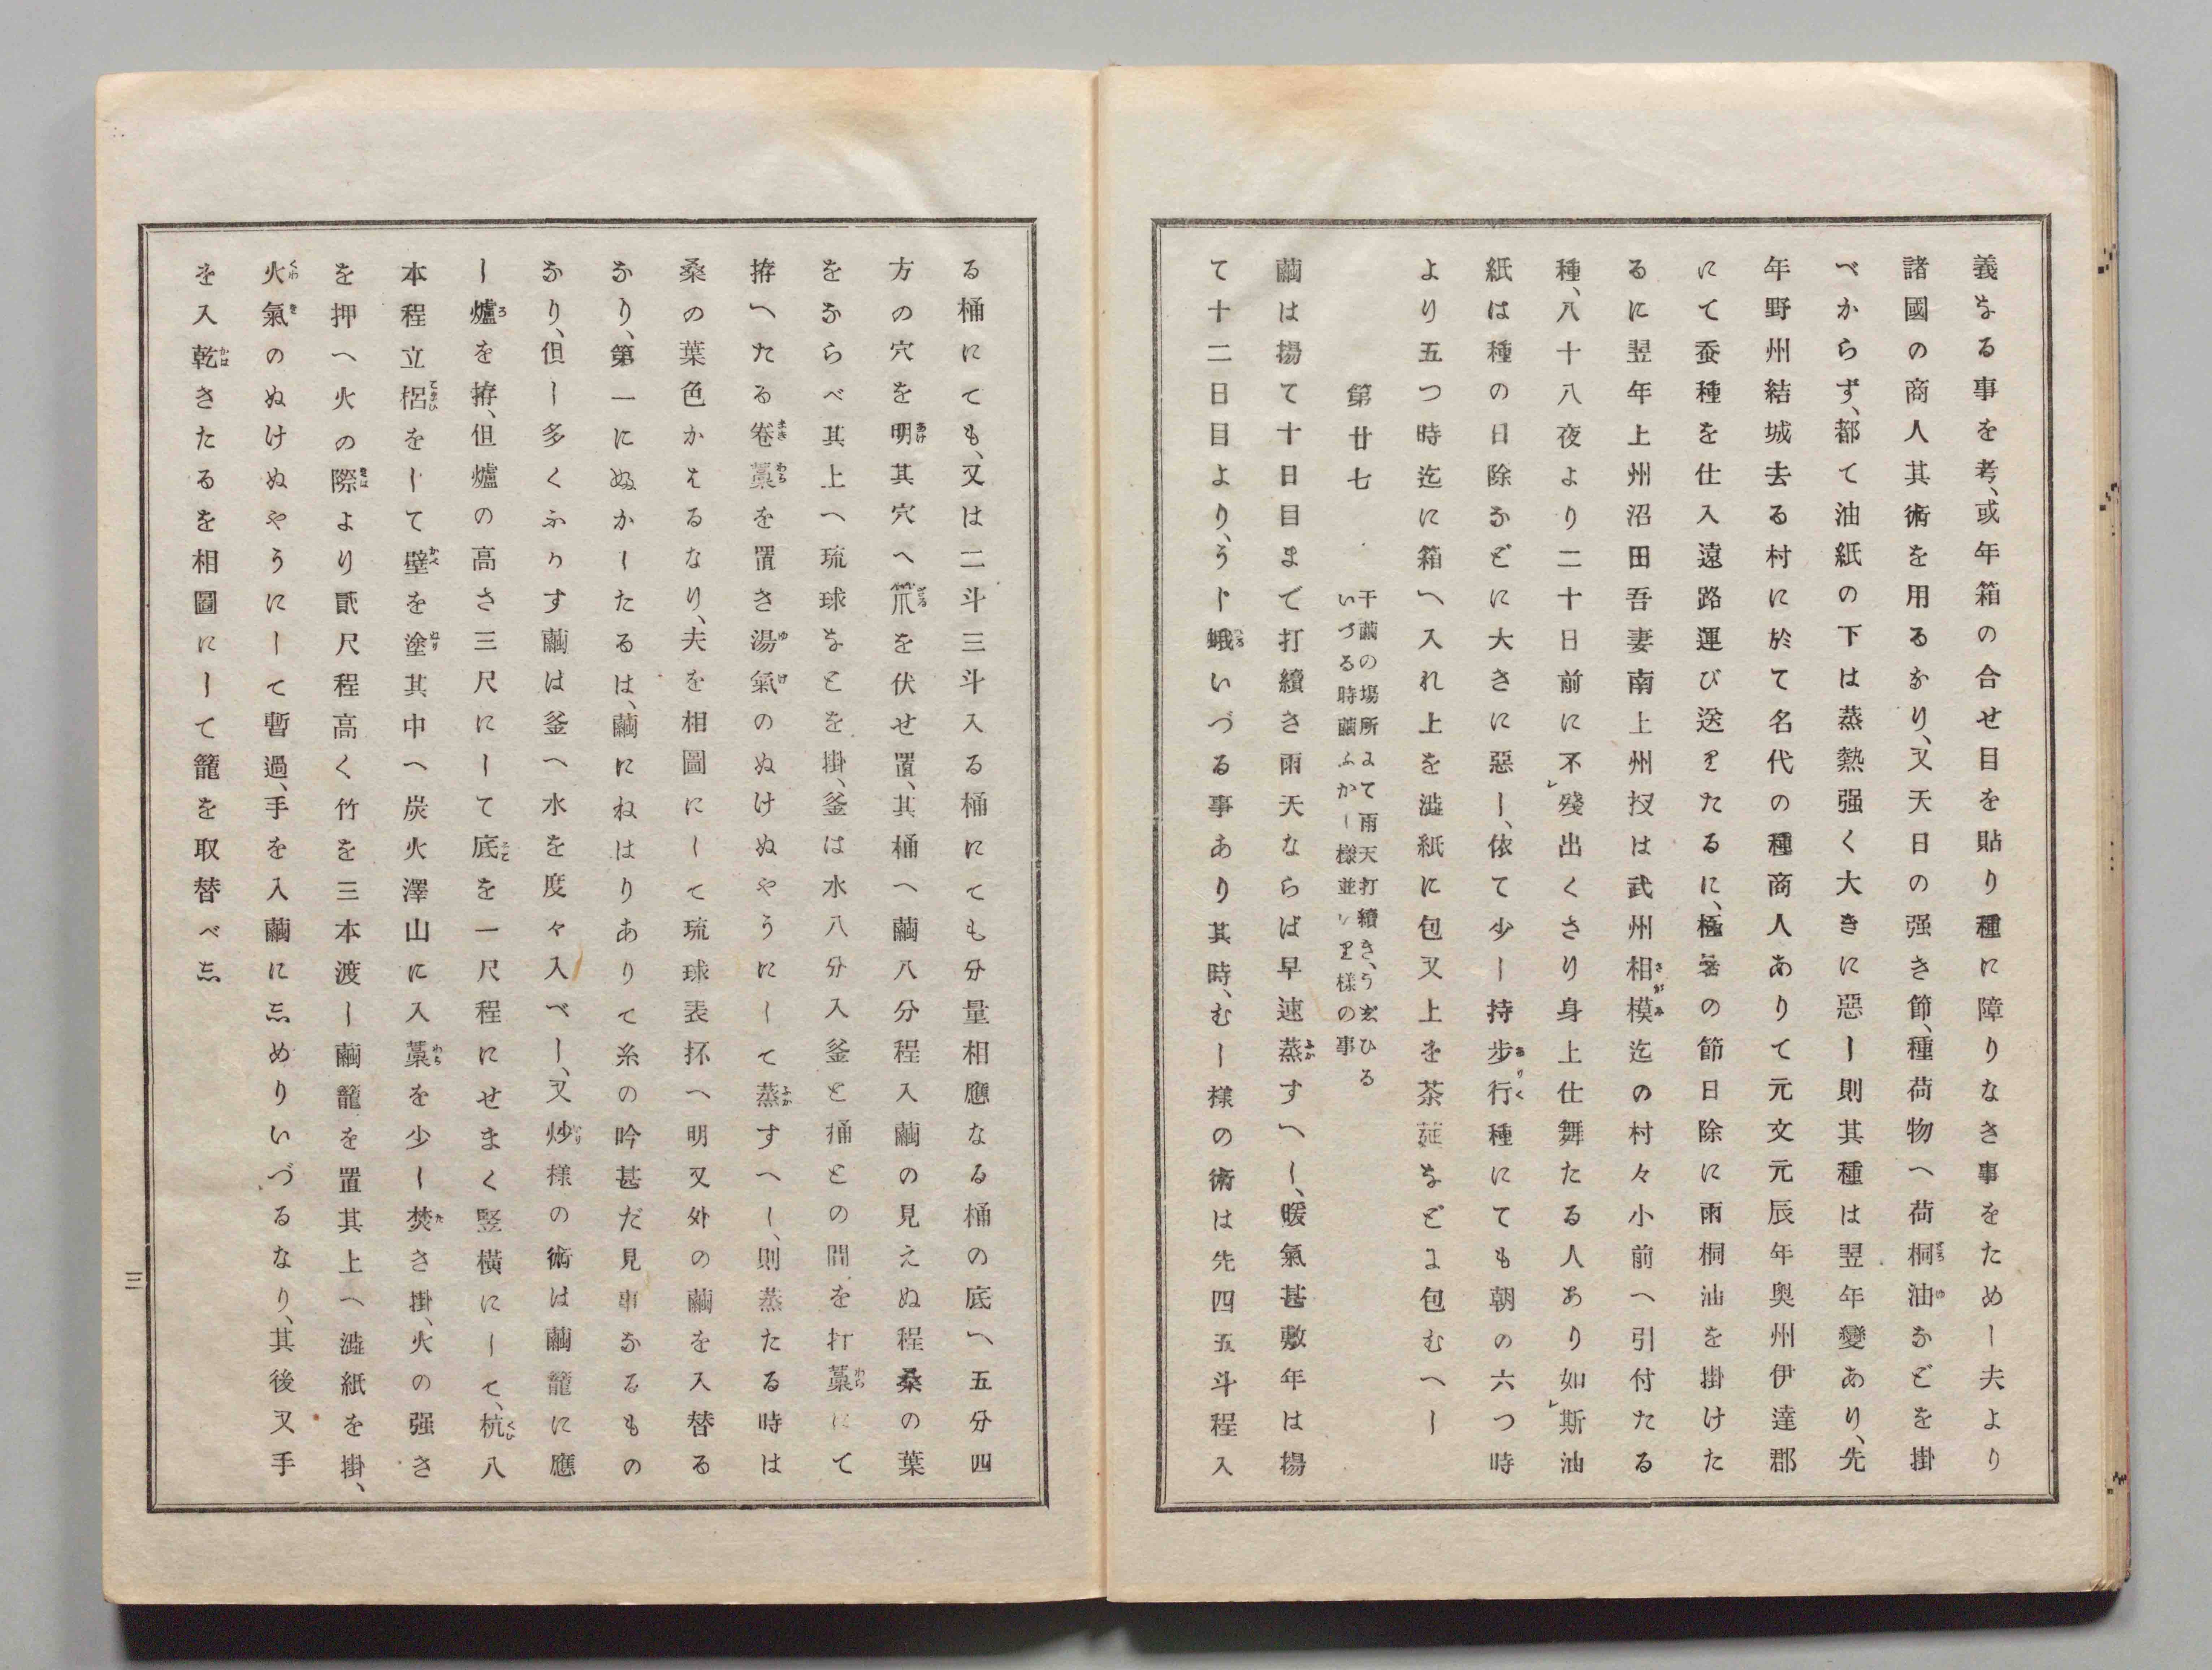 義なる事を考、或年箱の合せ目を貼り種に障りなき事をためし夫より
諸國の商人其術を用るなり、又天日の强き節、種荷物へ荷桐油などを掛
べからず、都て油紙の下は蒸熱强く大きに惡し則其種は翌年變あり、先
年野州結城去る村に於て名代の種商人ありて元文元辰年奥州伊達郡
にて蚕種を仕入遠路運び送りたるに、極暑の節日除に雨桐油を掛けた
るに翌年上州沼田吾妻南上州扨は武州相模迄の村々小前へ引付たる
種、八十八夜より二十日前に不レ殘出くさり身上仕舞たる人あり如レ斯油
紙は種の日除などに大きに惡し、依て少し持歩行種にても朝の六つ時
より五つ時迄に箱へ入れ上を澁紙に包又上を茶莚などに包むへし
第廿七
干繭の場所にて雨天打續き、うじひる
いづる時繭ふかし様並いり様の事
繭は揚て十日目まで打續き雨天ならば早速蒸すへし、暖氣甚敷年は揚
て十二日目より、うじ蛾いづる事あり其時、むし様の術は先四五斗程入
る桶にても、又は二斗三斗入る桶にても分量相應なる桶の底へ五分四
方の穴を明其穴へ笊を伏せ置、其桶へ繭八分程入繭の見えぬ程桑の葉
をならべ其上へ琉球なとを掛、釜は水八分入釜と桶との間を打藁にて
拵へたる卷藁を置き湯氣のぬけぬやうにして蒸すへし、則蒸たる時は
桑の葉色かえるなり、夫を相圖にして琉球表抔へ明又外の繭を入替る
なり、第一にぬかしたるは、繭にねはりありて糸の吟甚だ見事なるもの
なり、但し多くふかす繭は釜へ水を度々入べし、又炒様の術は繭籠に應
し爐を拵、但爐の高さ三尺にして底を一尺程にせまく竪橫にして、杭八
本程立梠をして壁を塗其中へ炭火澤山に入藁を少し焚き掛、火の强さ
を押へ火の際より貳尺程高く竹を三本渡し繭籠を置其上へ澁紙を掛、
火氣のぬけぬやうにして暫過、手を入繭にしめりいづるなり、其後又手
を入乾きたるを相圖にして籠を取替べし
三